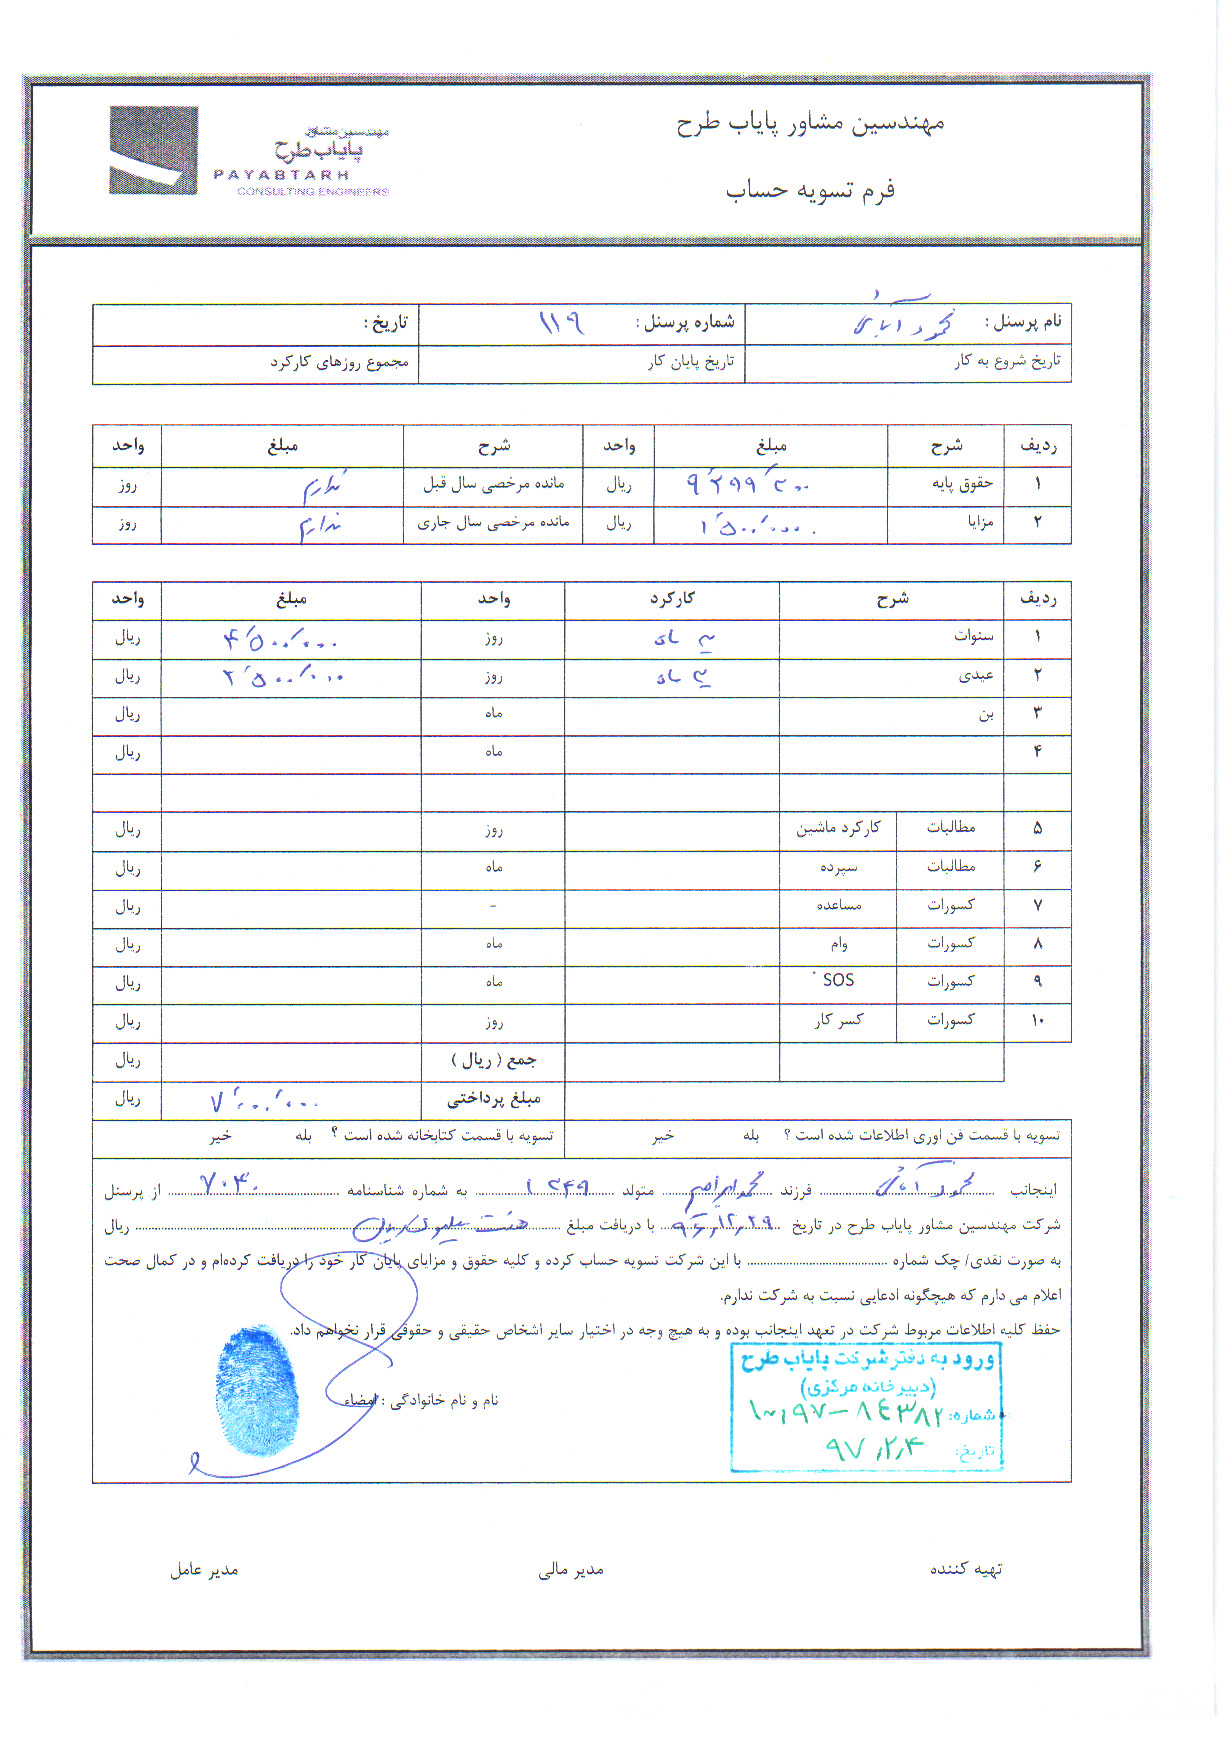 مهندسین مشاور پایاب طرح
مهندسین مشاور
پایاب طرح
PAYABTARH
CONSULTING ENGINEERS
فرم تسویه حساب
نام پرسنل : محمود شماره پرسنل : ۱۱۹ تاریخ :
تاریخ شروع به کار تاریخ پایان کار مجموع روزهای کارکرد
ردیف شرح مبلغ واحد شرح مبلغ واحد
۱ حقوق پایه ریال مانده مرخصی سال قبل ندارم روز
۲ مزایا ۱٬۵۰۰٬۰۰۰ ریال مانده مرخصی سال جاری ندارم روز
ردیف شرح کارکرد واحد مبلغ واحد
۱ سنوات ماه روز ۴٬۵۰۰٬۰۰۰ ریال
۲ عیدی ماه روز ۲٬۵۰۰٬۰۰۰ ریال
۳ بن ماه ریال
۴ ماه ریال
۵ مطالبات کارکرد ماشین روز ریال
۶ مطالبات سپرده ماه ریال
۷ کسورات مساعده - ریال
۸ کسورات وام ماه ریال
۹ کسورات SOS ماه ریال
۱۰ کسورات کسر کار روز ریال
جمع ( ریال ) ریال
مبلغ پرداختی ۷٬۰۰۰٬۰۰۰ ریال
تسویه با قسمت فن اوری اطلاعات شده است ؟ بله خیر تسویه با قسمت کتابخانه شده است ؟ بله خیر
اینجانب محمود فرزند محمدابراهیم متولد ۱۳۴۹ به شماره شناسنامه ۷۰۴۰ از پرسنل
شرکت مهندسین مشاور پایاب طرح در تاریخ ۹۶٫۱۲٫۲۹ با دریافت مبلغ هفت میلیون ریال ریال
به صورت نقدی/ چک شماره با این شرکت تسویه حساب کرده و کلیه حقوق و مزایای پایان کار خود را دریافت کرده‌ام و در کمال صحت
اعلام می دارم که هیچگونه ادعایی نسبت به شرکت ندارم.
حفظ کلیه اطلاعات مربوط شرکت در تعهد اینجانب بوده و به هیچ وجه در اختیار سایر اشخاص حقیقی و حقوقی قرار نخواهم داد.
نام و نام خانوادگی : امضاء
ورود به دفتر شرکت پایاب طرح
(دبیرخانه مرکزی)
شماره: ۱۰٫۹۷-۸۴۳۸۲
تاریخ: ۹۷٫۲٫۴
تهیه کننده مدیر مالی مدیر عامل